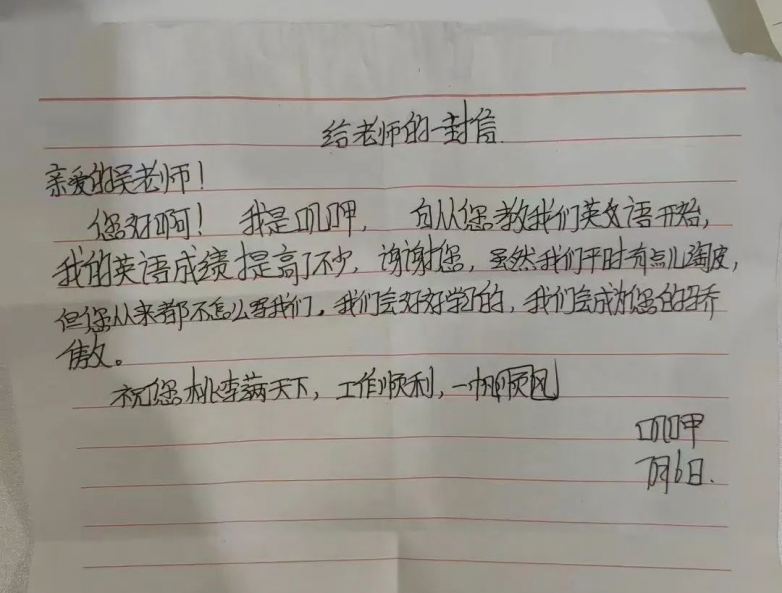 给老师的一封信.
亲爱的吴老师！
您好啊！ 我是叽呷， 自从您教我们英文语开始，
我的英语成绩提高了不少，谢谢您，虽然我们平时有点儿淘皮，
但您从来都不怎么骂我们。我们会好好学习的，我们会成为您的骄
傲。
祝您桃李满天下，工作顺利，一帆顺风
叽呷
7月6日.